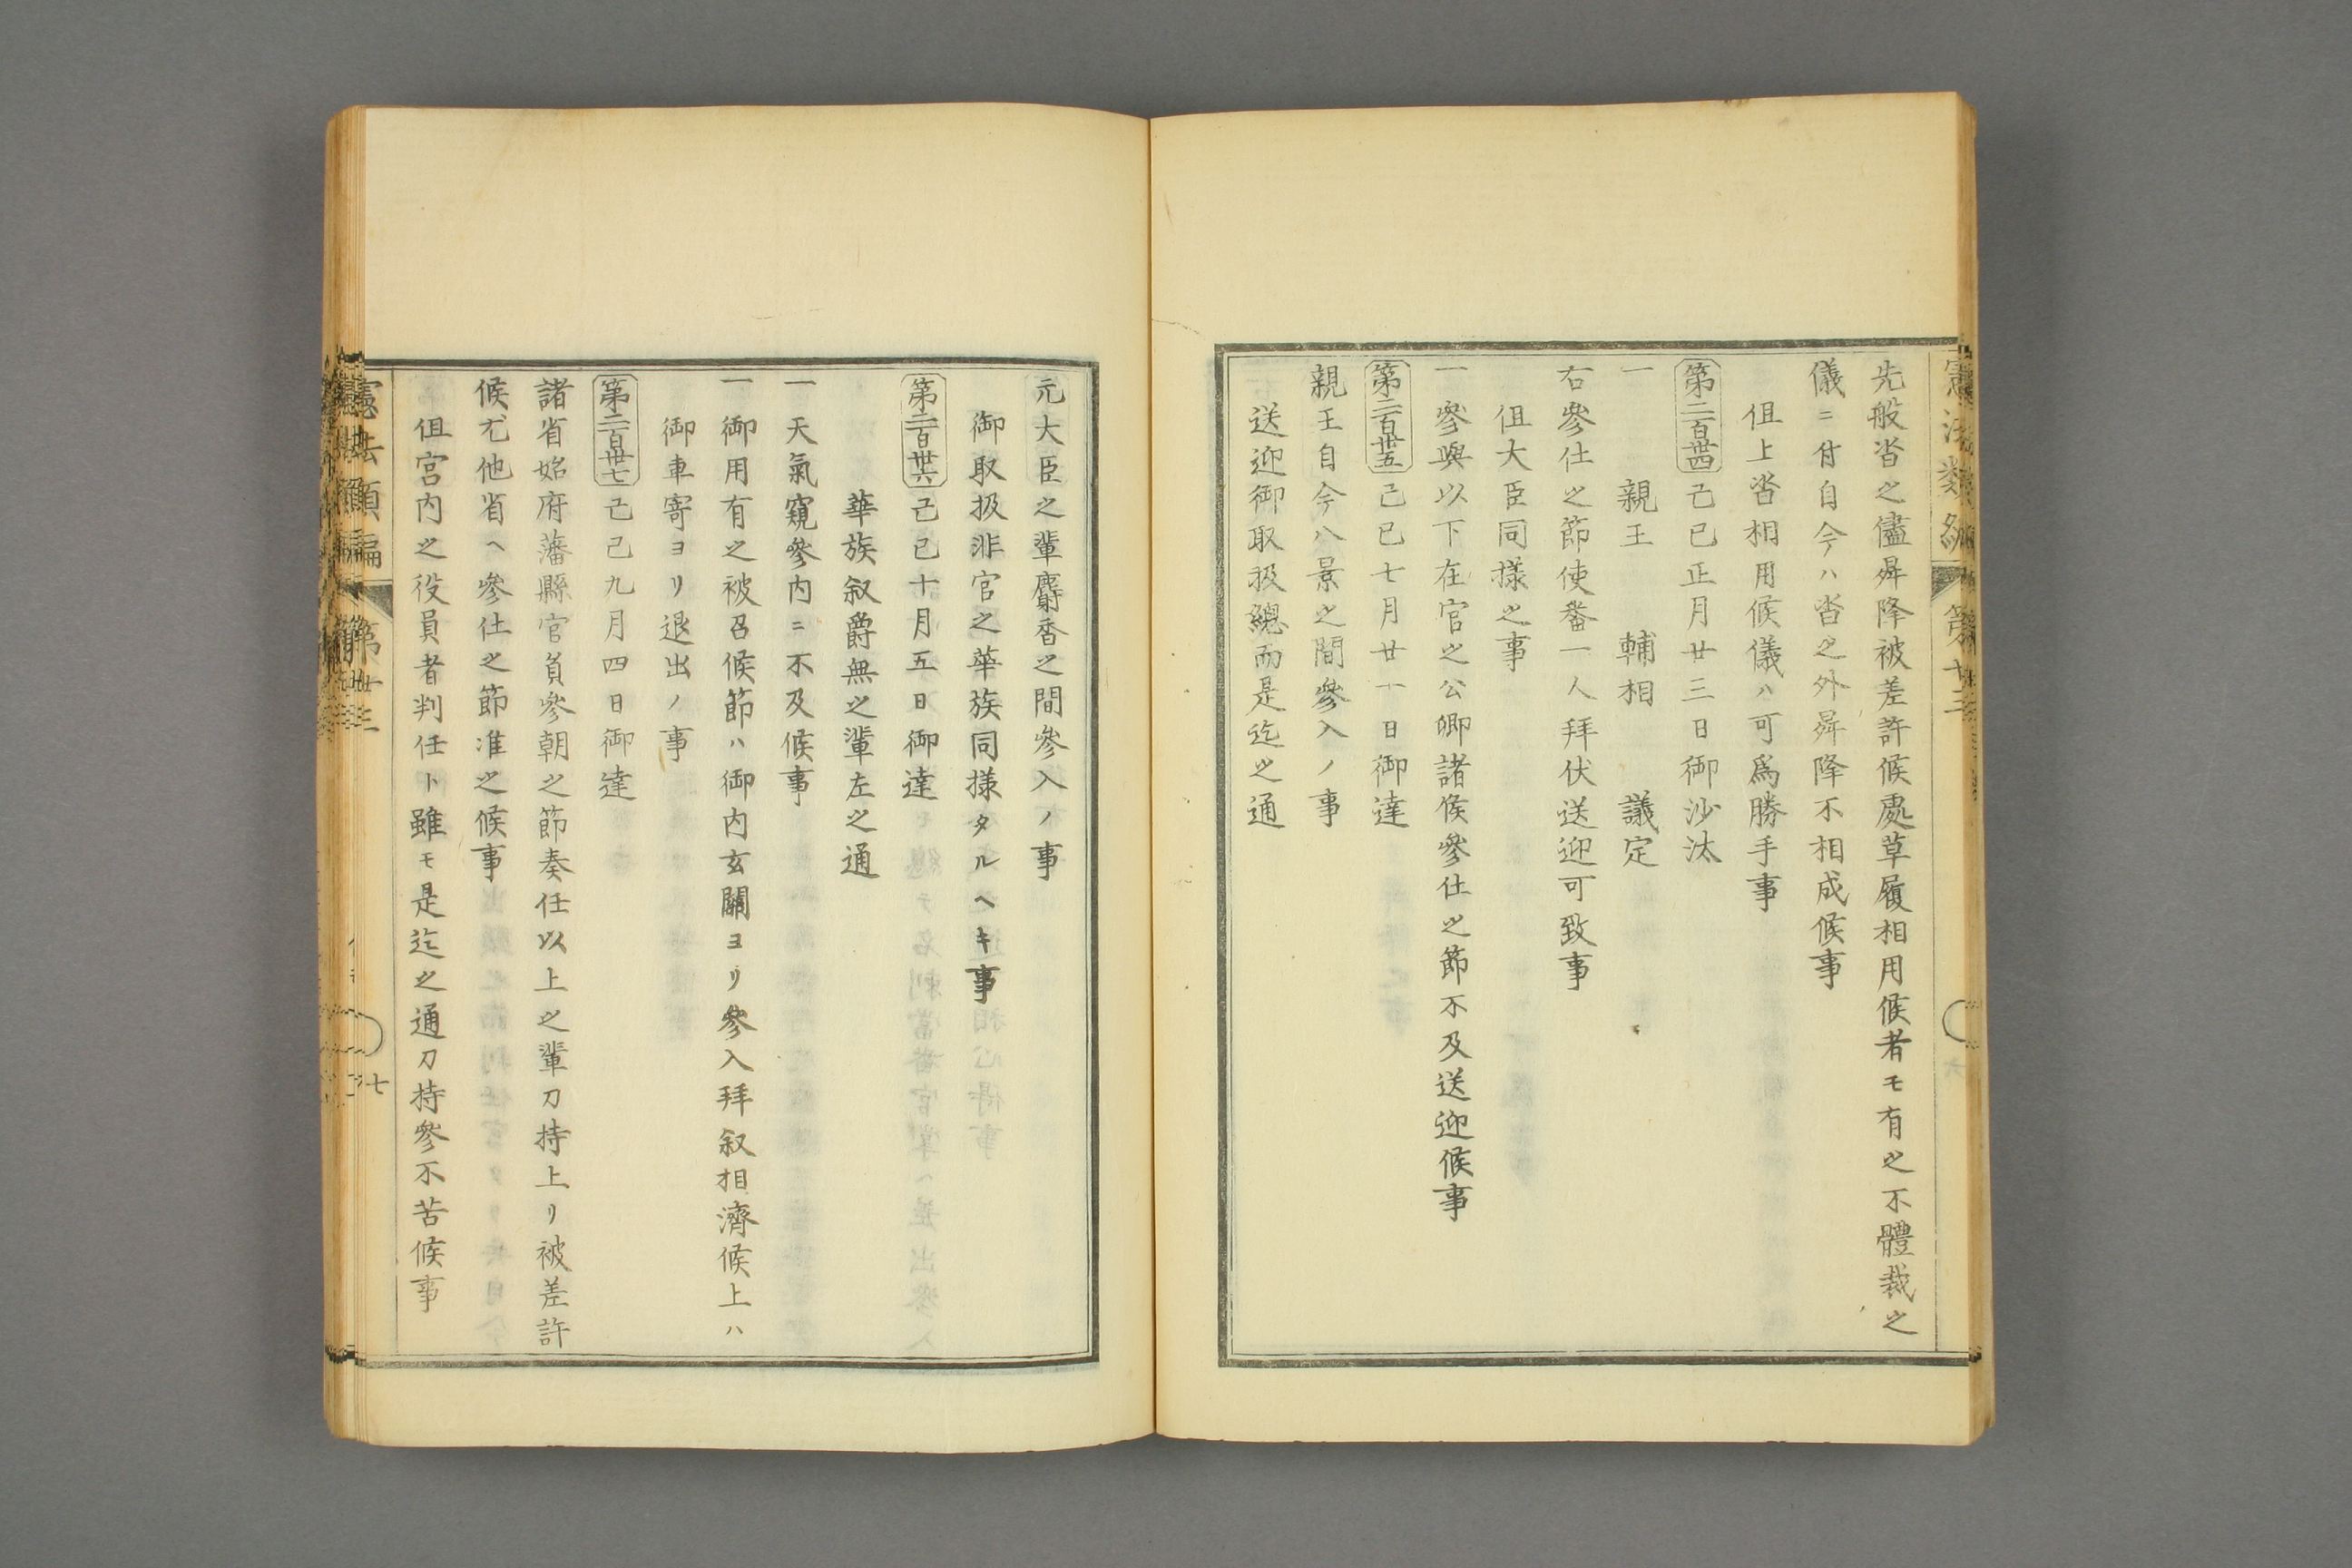 憲法類編 第廿三
先般沓之儘舁降被差許候處草履相用候者モ有之不體裁之
儀ニ付自今ハ沓之外舁降不相成候事
但上沓相用候儀ハ可爲勝手事
第二百卅四 己巳正月廿三日御沙汰
一 親王 輔相 議定
右參仕之節使番一人拜伏送迎可致事
但大臣同樣之事
一參與以下在官之公卿諸侯參仕之節不及送迎候事
第二百卅五 己巳七月廿一日御達
親王自今八景之間參入ノ事
送迎御取扱總而是迄之通
六
元大臣之輩麝香之間參入ノ事
御取扱非官之華族同樣タルヘキ事
第二百卅六 己巳十月五日御達
華族叙爵無之輩左之通
一天氣窺參内ニ不及候事
一御用有之被召候節ハ御内玄關ヨリ參入拜叙相濟候上ハ
御車寄ヨリ退出ノ事
第二百卅七 己巳九月四日御達
諸省始府藩縣官員參朝之節奏任以上之輩刀持上リ被差許
候尤他省ヘ參仕之節准之候事
但宮内之役員者判任ト雖モ是迄之通刀持參不苦候事
憲法類編 第廿三
七